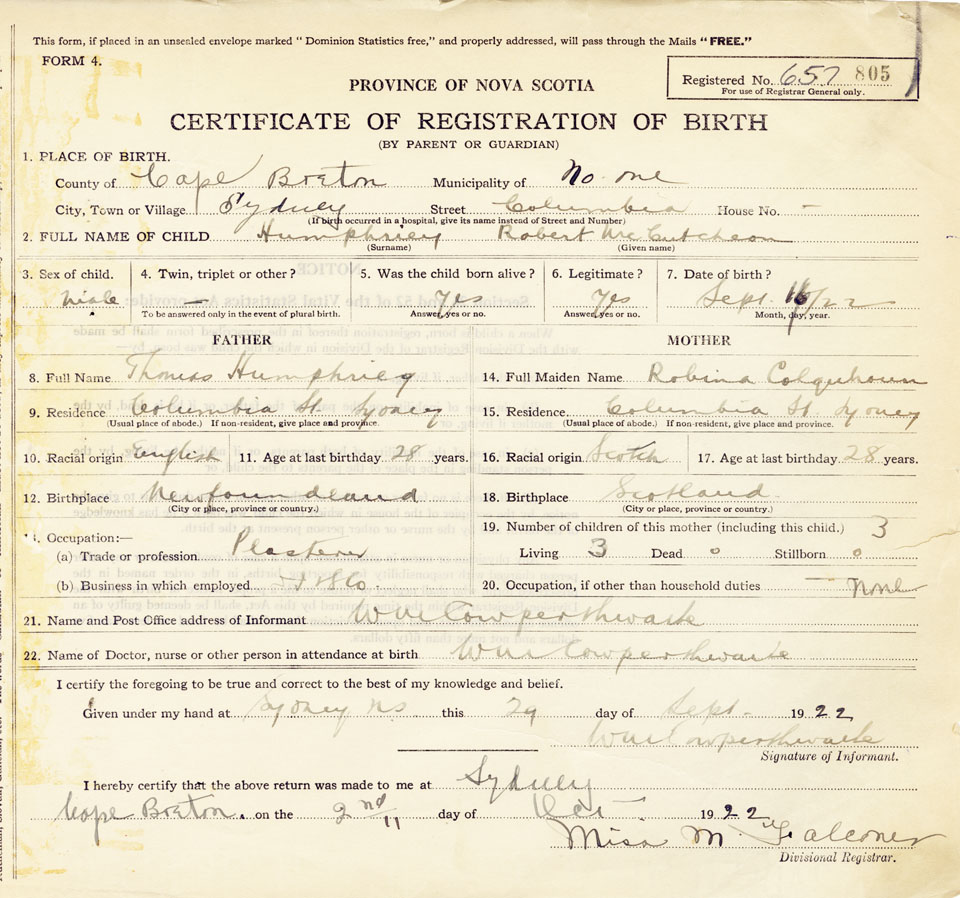 This form, if placed in an unsealed envelope marked " Dominion Statistics free," and properly addressed, will pass through the Mails " FREE."
FORM 4.
Registered No. 657 805
For use of Registrar General only.
PROVINCE OF NOVA SCOTIA
CERTIFICATE OF REGISTRATION OF BIRTH
(BY PARENT OR GUARDIAN)
1. PLACE OF BIRTH.
County of Cape Breton Municipality of No. one
City, Town or Village Sydney Street Columbia House No. —
(If birth occurred in a hospital, give its name instead of Street and Number)
2. FULL NAME OF CHILD Humphriey Robert McCutcheon
(Surname) (Given name)
3. Sex of child. 4. Twin, triplet or other? 5. Was the child born alive? 6. Legitimate? 7. Date of birth?
Male — Yes Yes Sept. 16/22
To be answered only in the event of plural birth. Answer, yes or no. Answer, yes or no. Month, day, year.
FATHER MOTHER
8. Full Name Thomas Humphriey 14. Full Maiden Name Robina Colquhoun
9. Residence Columbia St. Sydney 15. Residence Columbia St. Sydney
(Usual place of abode.) If non-resident, give place and province. (Usual place of abode.) If non-resident, give place and province.
10. Racial origin English 11. Age at last birthday 28 years. 16. Racial origin Scotch 17. Age at last birthday 28 years.
12. Birthplace Newfoundland 18. Birthplace Scotland
(City or place, province or country.) (City or place, province or country.)
19. Number of children of this mother (including this child.) 3
Occupation:—
(a) Trade or profession Plasterer Living 3 Dead 0 Stillborn 0
(b) Business in which employed 20. Occupation, if other than household duties — None
21. Name and Post Office address of Informant Wm Cowperthwaite
22. Name of Doctor, nurse or other person in attendance at birth Wm Cowperthwaite
I certify the foregoing to be true and correct to the best of my knowledge and belief.
Given under my hand at Sydney NS this 29 day of Sept. 1922
Wm Cowperthwaite
Signature of Informant.
I hereby certify that the above return was made to me at Sydney
Cape Breton. on the 2nd day of Oct 1922
Miss M. Falconer
Divisional Registrar.